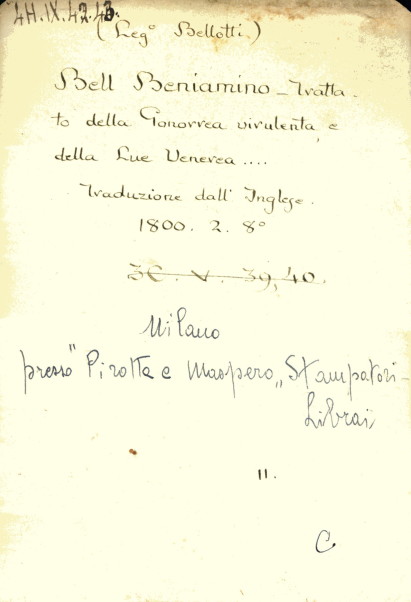 4H.IX.42.43.
(Leg.° Bellotti.)
Bell Beniamino - Tratta-
to della Gonorrea virulenta, e
della Lue Venerea....
Traduzione dall' Inglese.
1800. 2. 8°
3C. V. 39,40.
Milano
presso "Pirotta e Maspero„ Stampatori-
Librai
11.
C